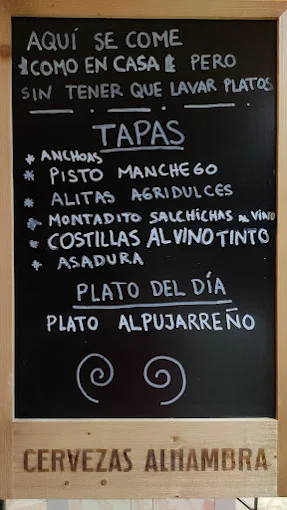 AQUÍ SE COME
¡COMO EN CASA! PERO
SIN TENER QUE LAVAR PLATOS
TAPAS
* ANCHOAS
* PISTO MANCHEGO
* ALITAS AGRIDULCES
* MONTADITO SALCHICHAS AL VINO
* COSTILLAS AL VINO TINTO
* ASADURA
PLATO DEL DÍA
PLATO ALPUJARREÑO
CERVEZAS ALHAMBRA